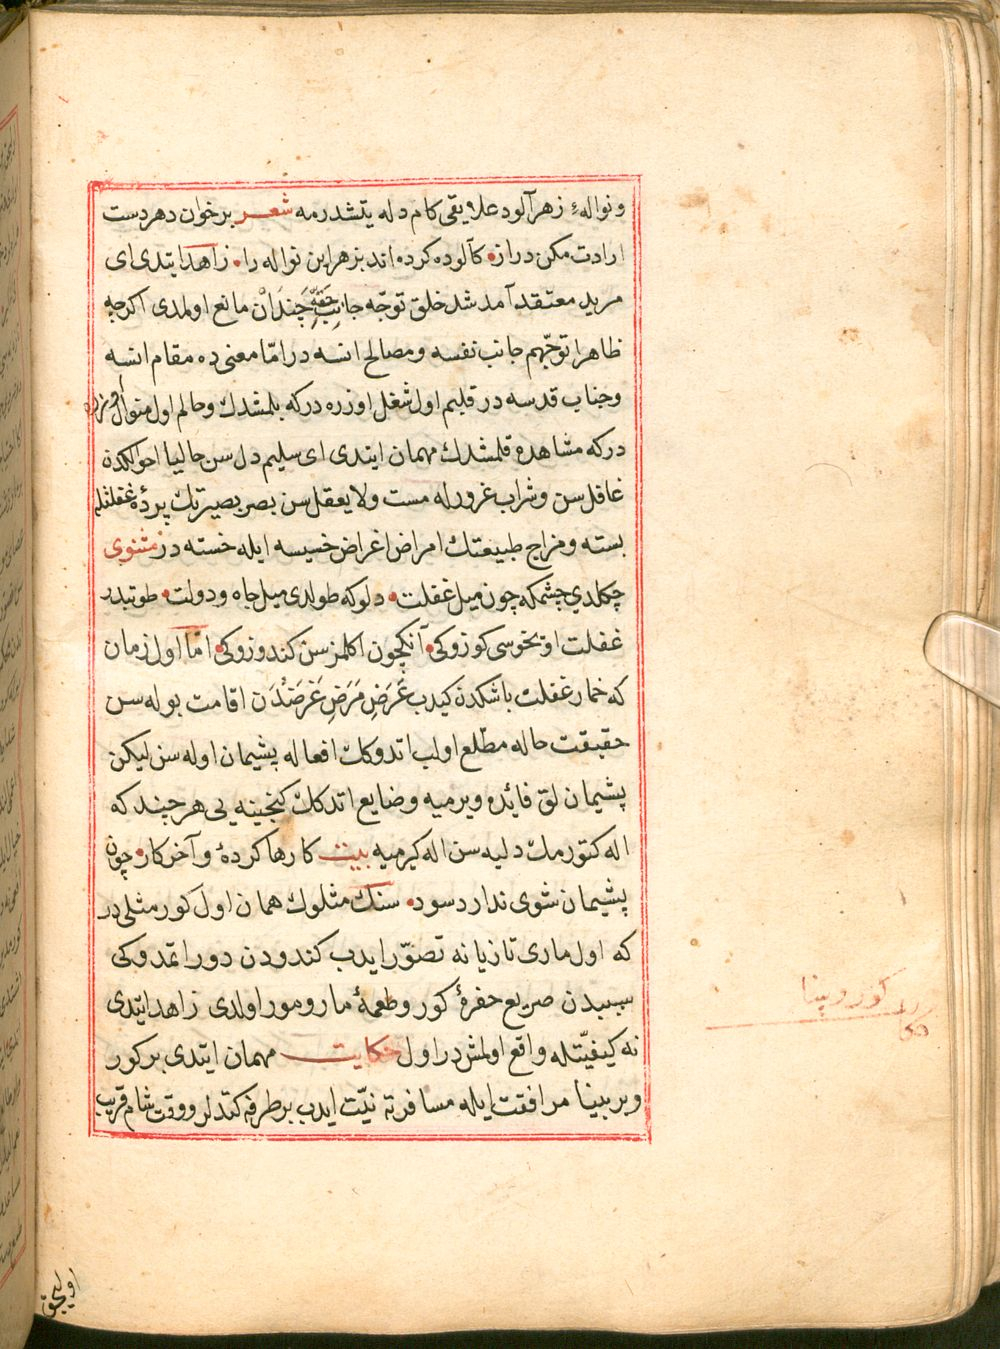 ونوالهٔ زهرآلود علایقی کام دله یتشدرمه شعر برخوان دهر دست
ارادت مکن دراز کآلوده کرده اند بزهر این نواله را زاهد ایتدی ای
مرید معتقد آمد شد خلق توجّه جانب حقه چندان مانع اولمدی اکرچه
ظاهرا توجّهم جانب نفسه ومصالح انسه در امّا معنی ده مقام انسه
وجناب قدسه در قلبم اول شغل اوزره درکه بلمشدك وحالم اول منوال اوزره
درکه مشاهده قلمشدك مهمان ایتدی ای سلیم دل سن حالیا احوالکدن
غافل سن وشراب غرورله مست ولا یعقل سن بصر بصیرتك پردهٔ غفلتله
بسته ومزاج طبیعتك امراض اغراض خسیسه ایله خسته در مثنوی
چکلدی چشمکه چون میل غفلت دلوکه طولدی میل جاه ودولت طوتبدر
غفلت اویخوسی کوزوکی آنکچون اکلمزسن کندوزوکی امّا اول زمان
که خمار غفلت باشکدن کیدب غَرَضِ مَرَضِ غَرَضْدَن اقامت بوله سن
حقیقت حاله مطّلع اولب اتدوکك افعاله پشیمان اوله سن لیکن
پشیمان لق فائده ویرمیه وضایع اتدکك کنجینه یی هرچند که
اله کتورمك دلیه سن اله کیرمیه بیت کارها کردهٔ وآخر کار چون
پشیمان شوی ندارد سود سنك مثلوك همان اول کور مثلی در
که اول ماری تازیانه تصوّر ایدب کندودن دور اتمدوکی
سببدن صریع حفرهٔ کور وطعمهٔ مار ومور اولدی زاهد ایتدی
نه کیفیّتله واقع اولمش در اول حکایت مهمان ایتدی بر کور
وبر بینا مرافقت ایله مسافرته نیّت ایدب بر طرفه کتدلر ووقت شام قریب
کور وبینا
اولیجق